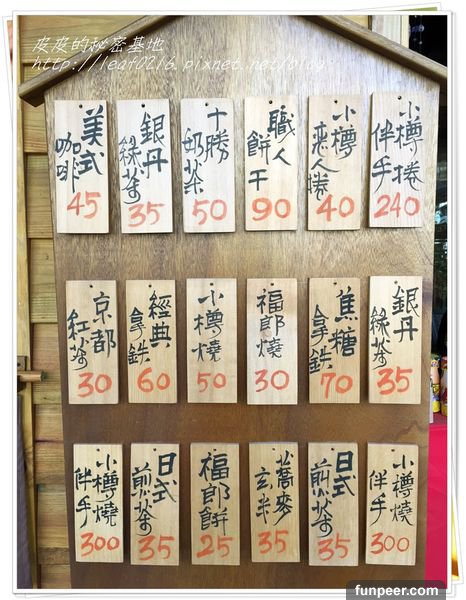 皮皮的秘密基地
http://leaf0216.pixnet.net/blog
美式
咖啡
45
銀丹
綠茶
35
十勝
奶茶
50
職人
餅干
90
小樽
恋人捲
40
小樽捲
伴手
240
京都
紅茶
30
經典
拿鉄
60
小樽燒
50
福郎燒
30
焦糖
拿鉄
70
銀丹
綠茶
35
小樽燒
伴手
300
日式
煎茶
35
福郎餅
25
蕎麥
玄米
35
日式
煎茶
35
小樽燒
伴手
300
funpeer.com